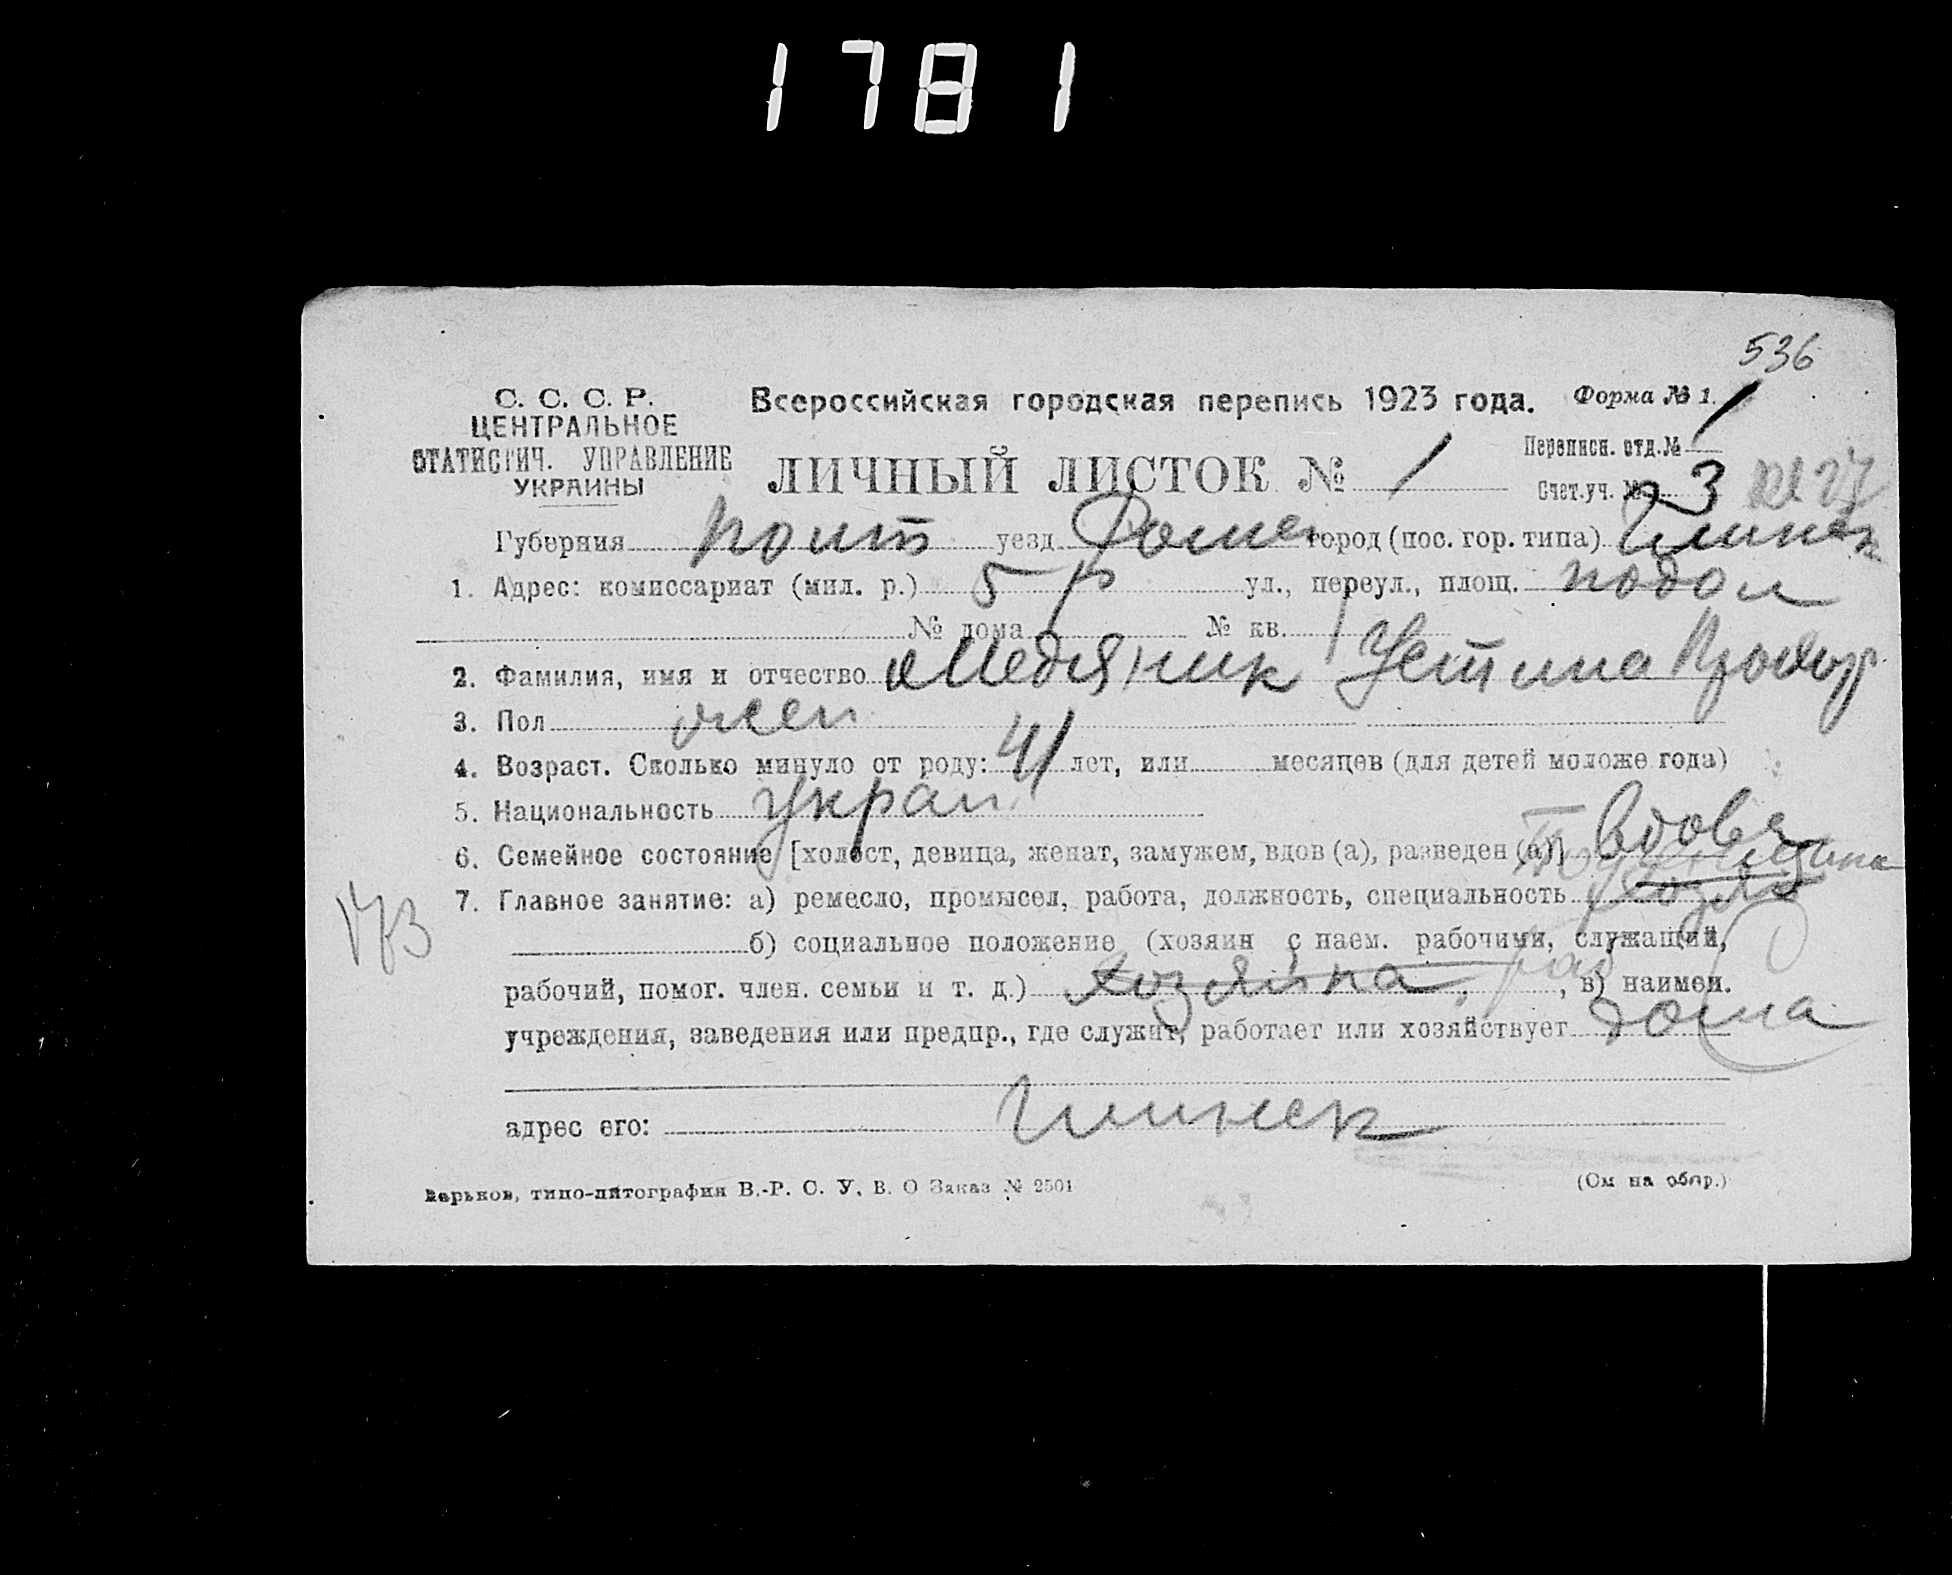 1781
536
С. С. С. Р.
ЦЕНТРАЛЬНОЕ
СТАТИСТИЧ. УПРАВЛЕНИЕ
УКРАИНЫ
Всероссийская городская перепись 1923 года. Форма № 1.
ЛИЧНЫЙ ЛИСТОК № 1
Переписн. отд. № 1
Счет. уч. № 3
Губерния Полт уезд Ромен город (пос. гор. типа) Глинск
1. Адрес: комиссариат (мил. р.) 5 р ул., переул., площ. подол
№ дома № кв.
2. Фамилия, имя и отчество Медяник Устина
3. Пол жен
4. Возраст. Сколько минуло от роду: 41 лет, или месяцев (для детей моложе года)
5. Национальность Украин
6. Семейное состояние [холост, девица, женат, замужем, вдов (а), разведен (а)] Вдова
7. Главное занятие: а) ремесло, промысел, работа, должность, специальность
173
б) социальное положение (хозяин с наем. рабочими, служащий,
рабочий, помог. член. семьи и т. д.) хозяйка , в) наимен.
учреждения, заведения или предпр., где служит, работает или хозяйствует дома
адрес его: Глинск
Харьков, типо-литография В.-Р. С. У. В. О Заказ № 2501
(См на обор.)